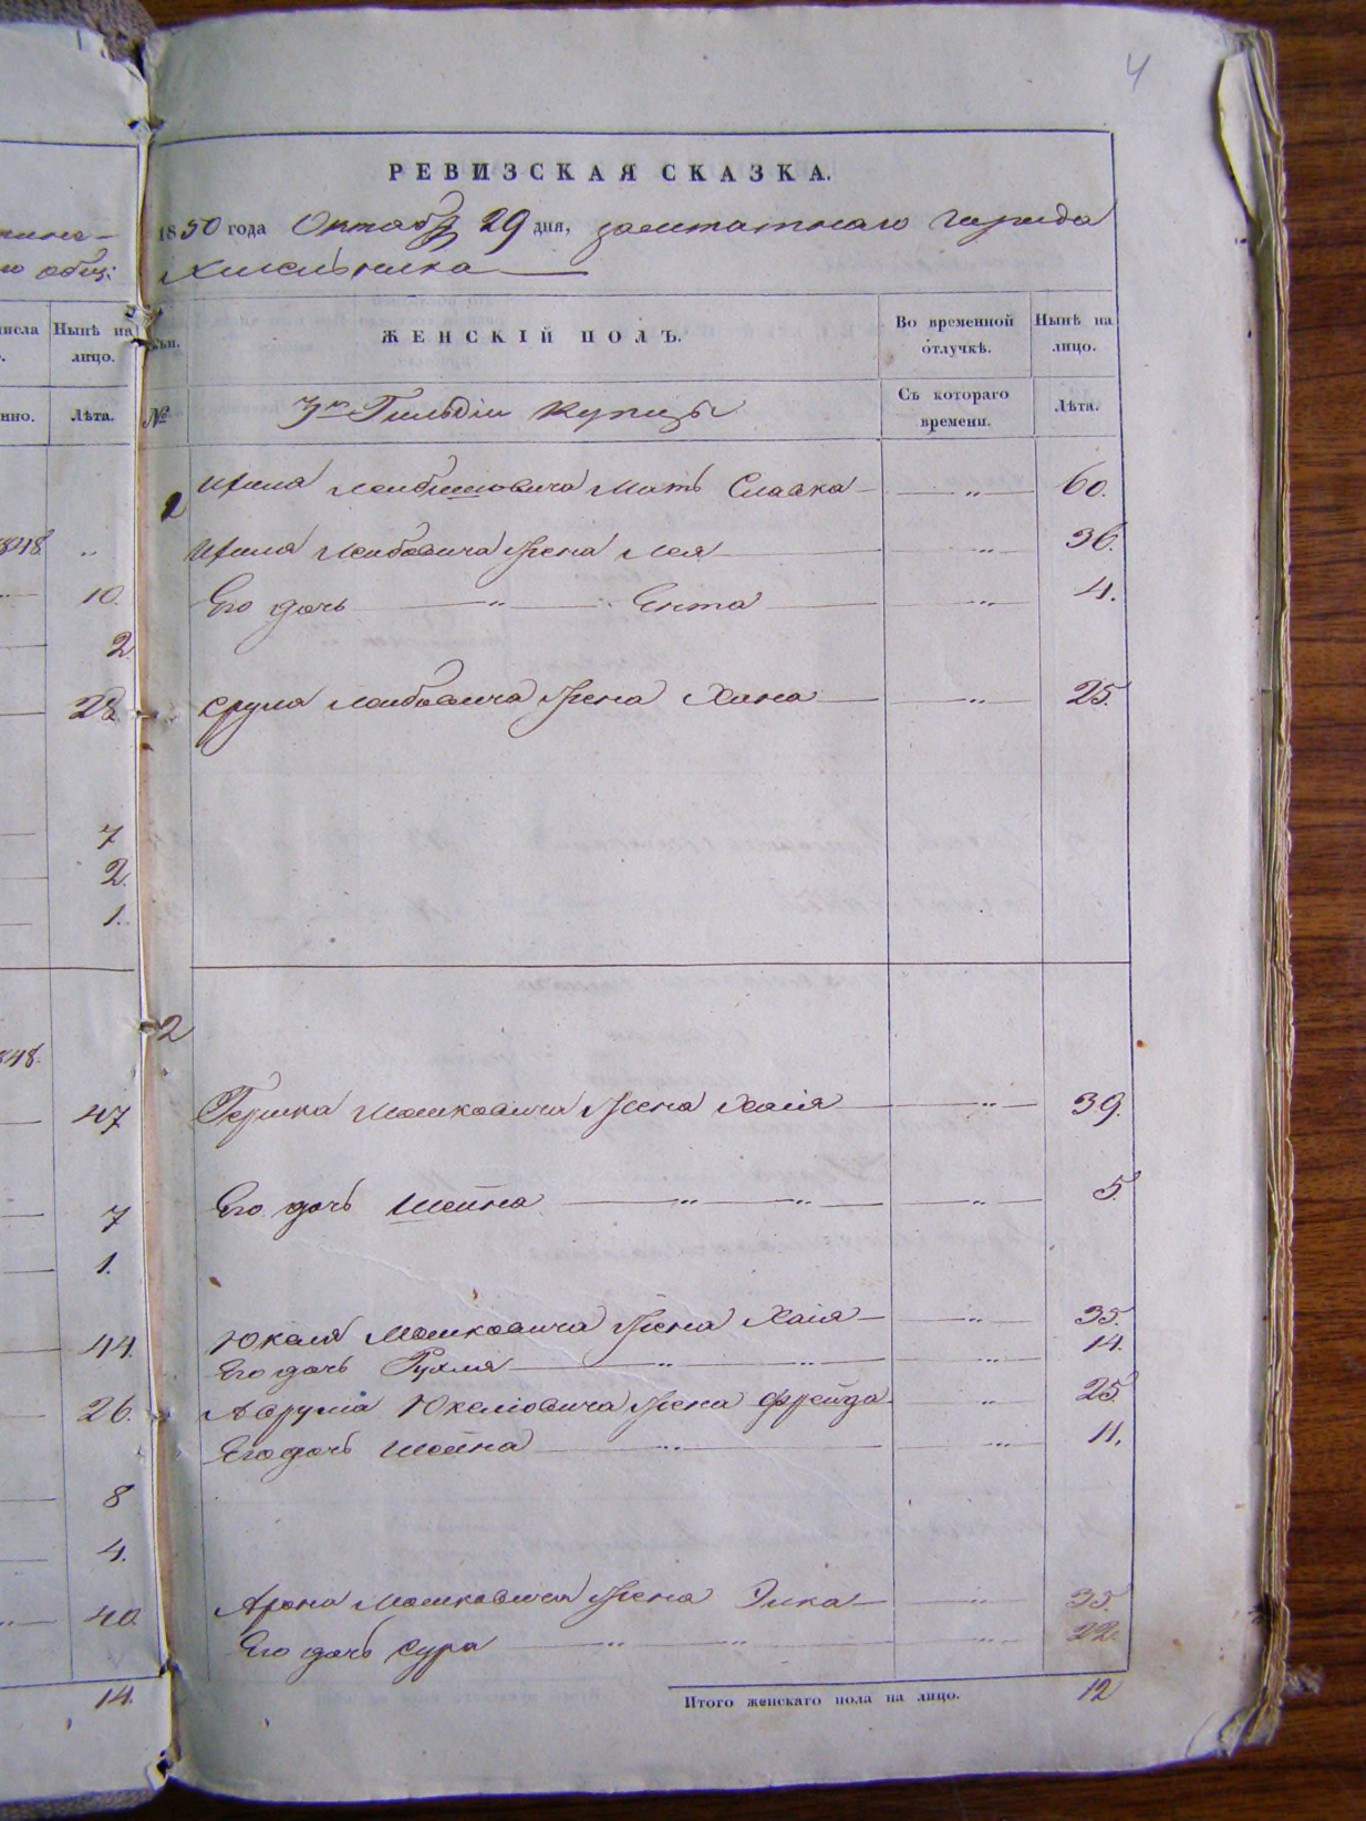 4
РЕВИЗСКАЯ СКАЗКА.
1850 года Октября 29 дня, заштатнаго города
Хмельника
ЖЕНСКІЙ ПОЛЪ. Во временной отлучкѣ. Нынѣ на лицо.
№ 3й Гильдіи Купцы Съ котораго времени. Лѣта.
1 Ицика Лейбовича Мать Славка — " — 60.
Лейбовича Жена Лея — " — 36.
Его дочь — " — Ента — " — 4.
Срулия Лейбовича Жена Хана — " — 25.
2
Гершка Мошковича Жена Хаія — " — 39.
Его дочь Шейна — " — " — " — 5.
Юкеля Мошковича Жена Хаія — " — 35.
Его дочь Рухля — " — " — " — 14.
Аврума Юкеліовича Жена Фрейда — " 25.
Его дочь Шейна — " — " — 11.
Арона Мошковича Жена Элка — " — 35.
Его дочь Сура — " — " — " — 22.
Итого женскаго пола на лицо. 12
общ:
числа Нынѣ на лицо.
Лѣта.
1848. "
10.
2.
28.
7
2.
1.
848.
47
7
1.
44.
26.
8
4.
40.
14.